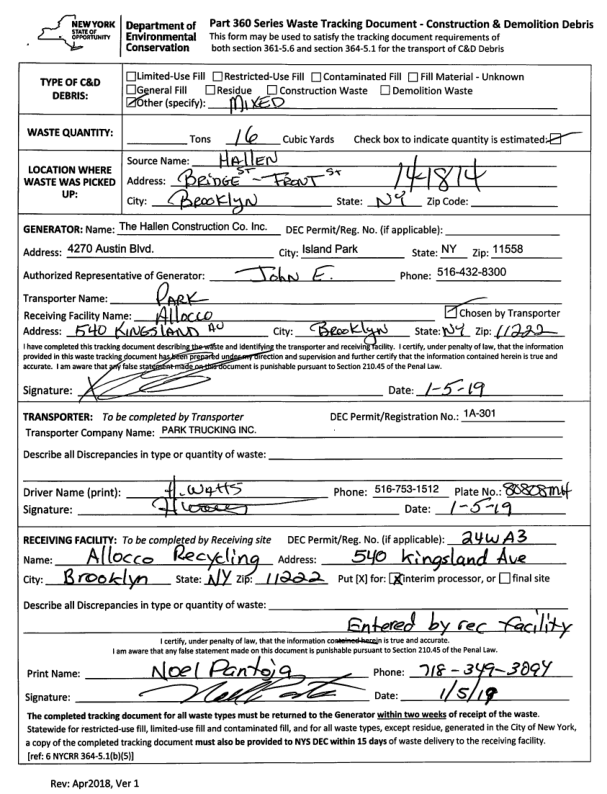 NEW YORK
STATE OF
OPPORTUNITY
Department of
Environmental
Conservation
Part 360 Series Waste Tracking Document - Construction & Demolition Debris
This form may be used to satisfy the tracking document requirements of
both section 361-5.6 and section 364-5.1 for the transport of C&D Debris
TYPE OF C&D
DEBRIS:
Limited-Use Fill Restricted-Use Fill Contaminated Fill Fill Material - Unknown
General Fill Residue Construction Waste Demolition Waste
Other (specify): MIXED
WASTE QUANTITY: Tons 16 Cubic Yards Check box to indicate quantity is estimated:
LOCATION WHERE
WASTE WAS PICKED
UP:
Source Name: HALLEN
Address: BRIDGE ST - FRONT ST 141814
City: Brooklyn State: NY Zip Code:
GENERATOR: Name: The Hallen Construction Co. Inc. DEC Permit/Reg. No. (if applicable):
Address: 4270 Austin Blvd. City: Island Park State: NY Zip: 11558
Authorized Representative of Generator: John E. Phone: 516-432-8300
Transporter Name: PARK
Receiving Facility Name: Allocco Chosen by Transporter
Address: 540 KINGSLAND AU City: Brooklyn State: NY Zip: 11222
I have completed this tracking document describing the waste and identifying the transporter and receiving facility. I certify, under penalty of law, that the information
provided in this waste tracking document has been prepared under my direction and supervision and further certify that the information contained herein is true and
accurate. I am aware that any false statement made on this document is punishable pursuant to Section 210.45 of the Penal Law.
Signature: Date: 1-5-19
TRANSPORTER: To be completed by Transporter DEC Permit/Registration No.: 1A-301
Transporter Company Name: PARK TRUCKING INC.
Describe all Discrepancies in type or quantity of waste:
Driver Name (print): H. Watts Phone: 516-753-1512 Plate No.: 80808MH
Signature: Date: 1-5-19
RECEIVING FACILITY: To be completed by Receiving site DEC Permit/Reg. No. (if applicable): 24WA3
Name: Allocco Recycling Address: 540 Kingsland Ave
City: Brooklyn State: NY Zip: 11222 Put [X] for: X interim processor, or final site
Describe all Discrepancies in type or quantity of waste:
Entered by rec facility
I certify, under penalty of law, that the information contained herein is true and accurate.
I am aware that any false statement made on this document is punishable pursuant to Section 210.45 of the Penal Law.
Print Name: Noel Pantoja Phone: 718-349-3894
Signature: Date: 1/5/19
The completed tracking document for all waste types must be returned to the Generator within two weeks of receipt of the waste.
Statewide for restricted-use fill, limited-use fill and contaminated fill, and for all waste types, except residue, generated in the City of New York,
a copy of the completed tracking document must also be provided to NYS DEC within 15 days of waste delivery to the receiving facility.
[ref: 6 NYCRR 364-5.1(b)(5)]
Rev: Apr2018, Ver 1